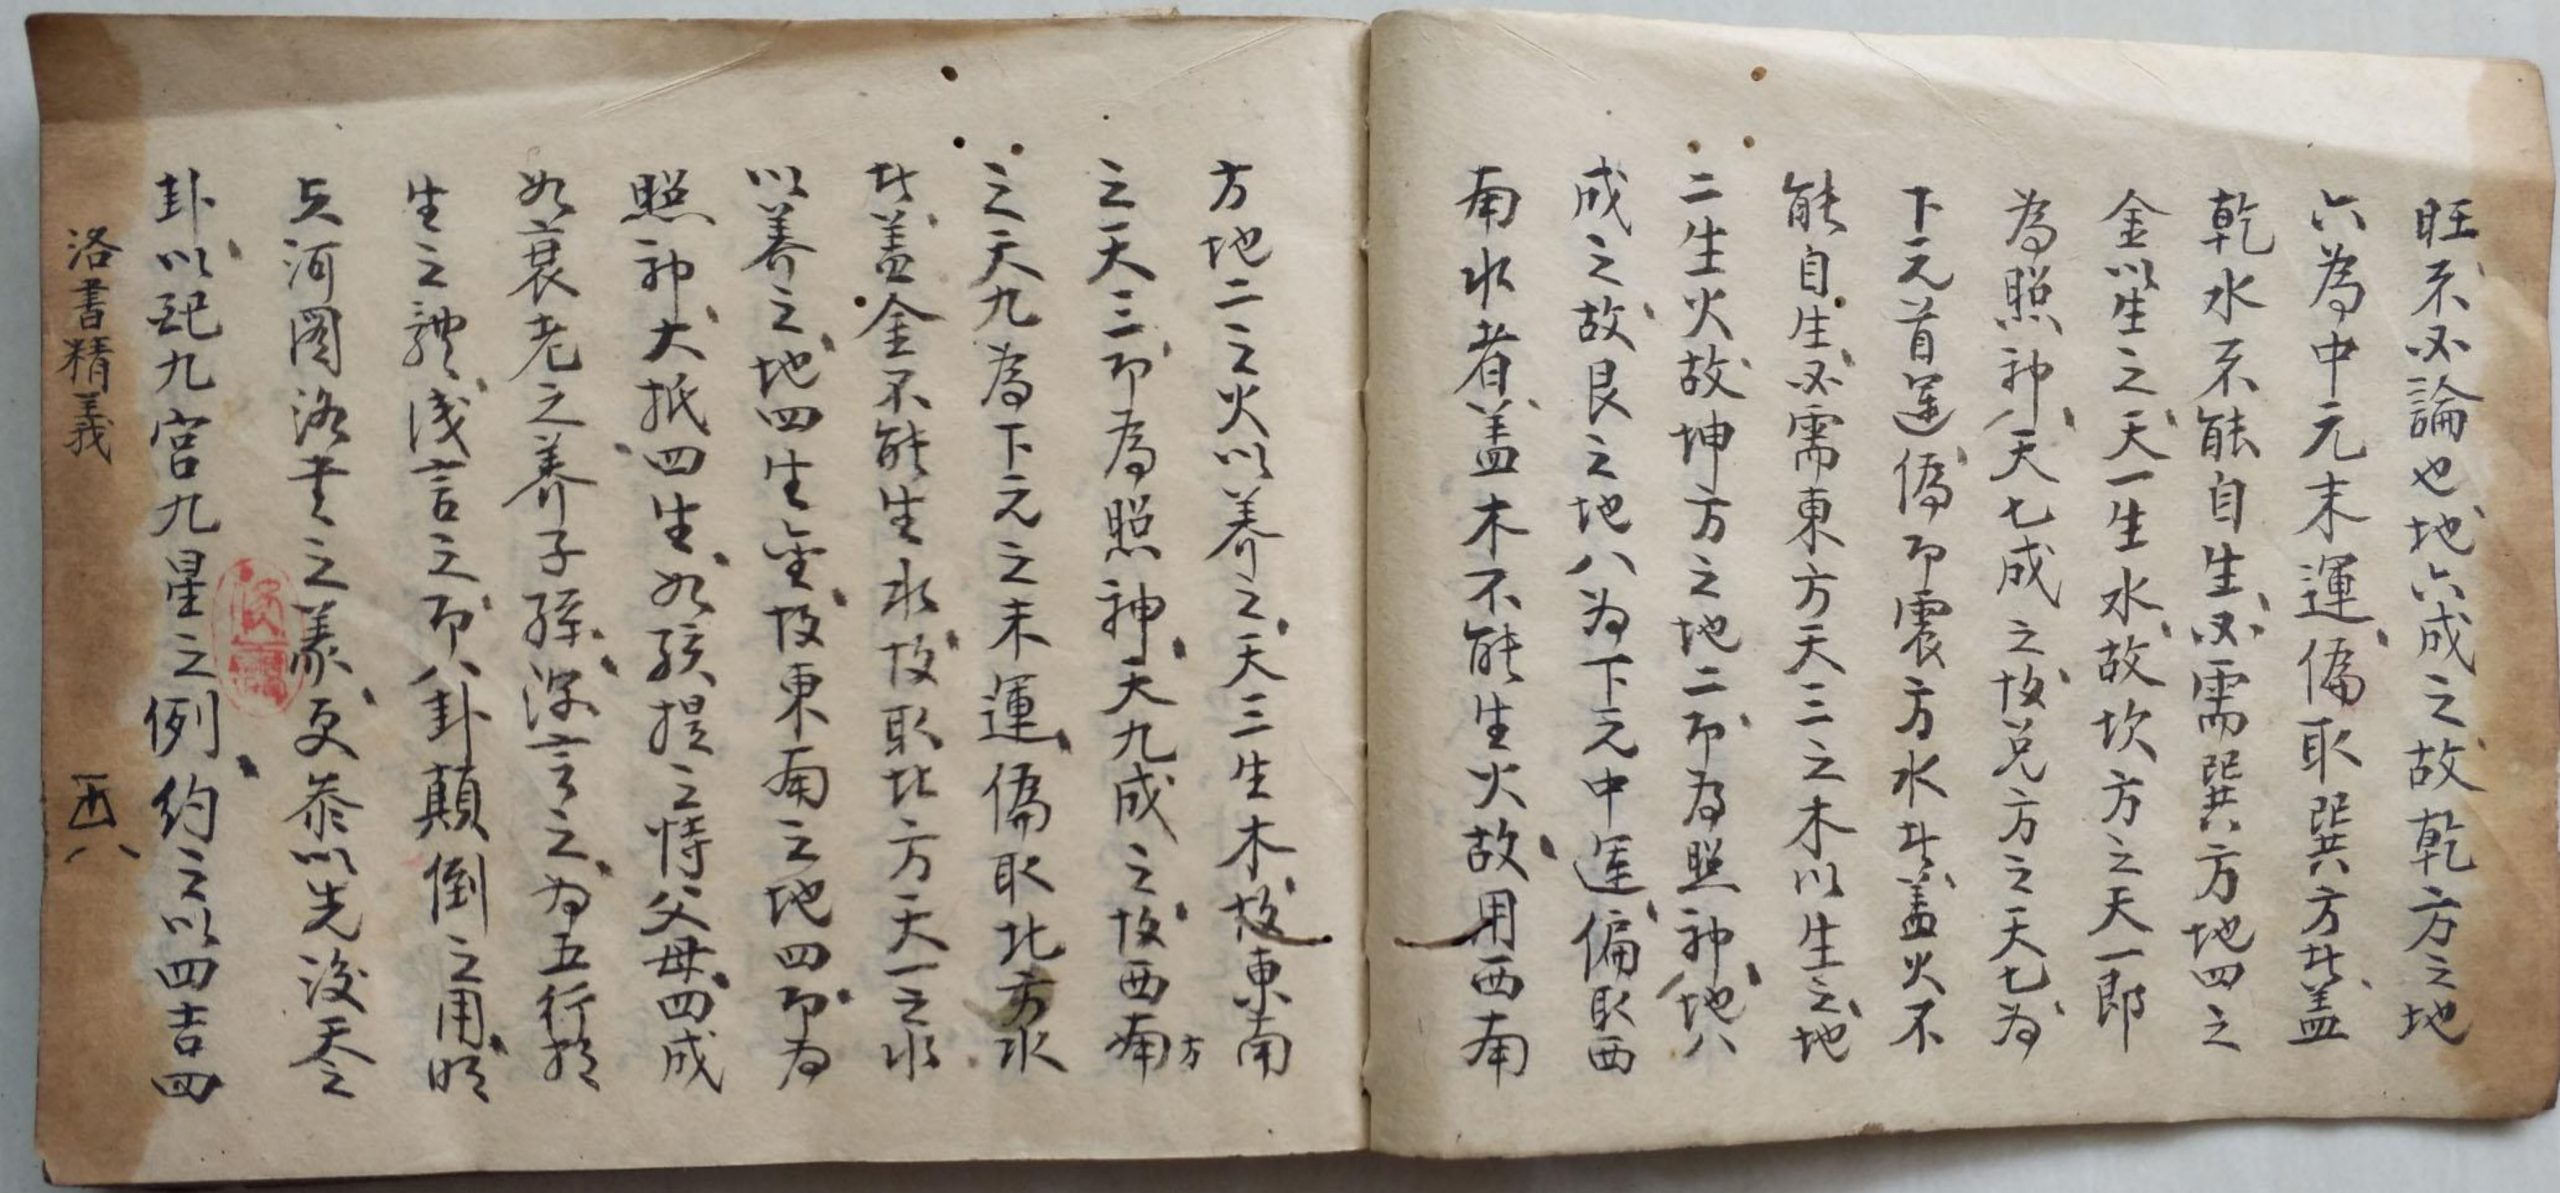 旺不必論也地六成之故乾方之地
六為中元末運偏取巽方此盖
乾水不能自生必需巽方地四之
金以生之天一生水故坎方之天一郎
為照神天七成之故兌方之天七为
下元首運偏即震方水此盖火不
能自生必需東方天三之木以生之地
二生火故坤方之地二即为照神地八
成之故艮之地八为下元中運偏取西
南水者盖木不能生火故用西南
方地二之火以养之天三生木故東南
之天三即為照神天九成之故西南方
之天九為下元之末運偏取北方水
此盖金不能生水故取北方天一之水
以养之地四生金故東南之地四即为
照神大抵四生如孩提之恃父母四成
如衰老之养子孫深言之为五行
生之淺言之即八卦顛倒之用
河图洛書之更参以先後天之
卦以配九宮九星之例約之以四吉四
洛書精義
八